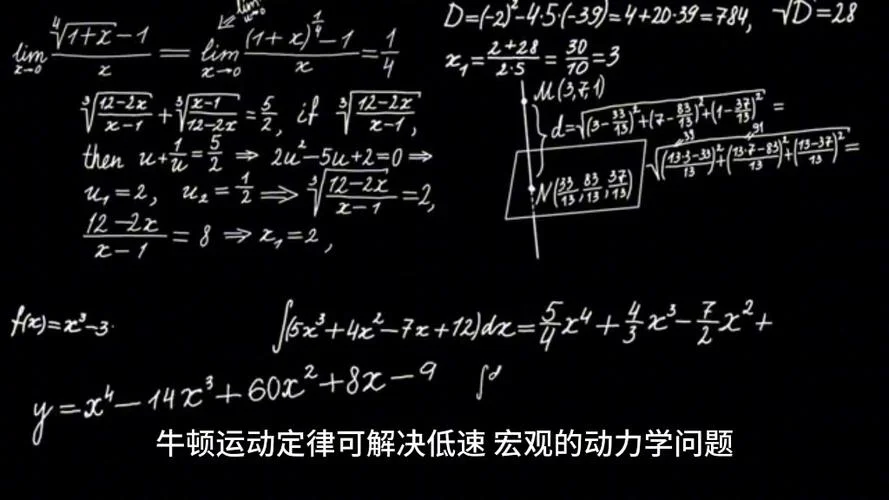 lim x→0 ∜(1+x) − 1 / x = lim x→0 (1+x)^(1/4) − 1 / x = 1/4
lim x→0
∛((12−2x)/(x−1)) + ∛((x−1)/(12−2x)) = 5/2, if ∛((12−2x)/(x−1)),
then u + 1/u = 5/2 ⇒ 2u² − 5u + 2 = 0 ⇒
u₁ = 2, u₂ = 1/2 ⇒ ∛((12−2x)/(x−1)) = 2,
(12−2x)/(x−1) = 8 ⇒ x₁ = 2,
D = (−2)² − 4·5·(−39) = 4 + 20·39 = 784, √D = 28
x₁ = (2+28)/(2·5) = 30/10 = 3
M(3,7,1)
d = √((3 − 33/13)² + (7 − 83/13)² + (1 − 37/13)²) =
39 91
√(((13·3−33)/13)² + ((13·7−83)/13)² + ((13−37)/13)²) =
N(33/13, 83/13, 37/13)
f(x) = x³ − 3
∫(5x³ + 4x² − 7x + 12)dx = 5/4 x⁴ + 4/3 x³ − 7/2 x² +
y = x⁴ − 14x³ + 60x² + 8x − 9
∫
牛顿运动定律可解决低速 宏观的动力学问题